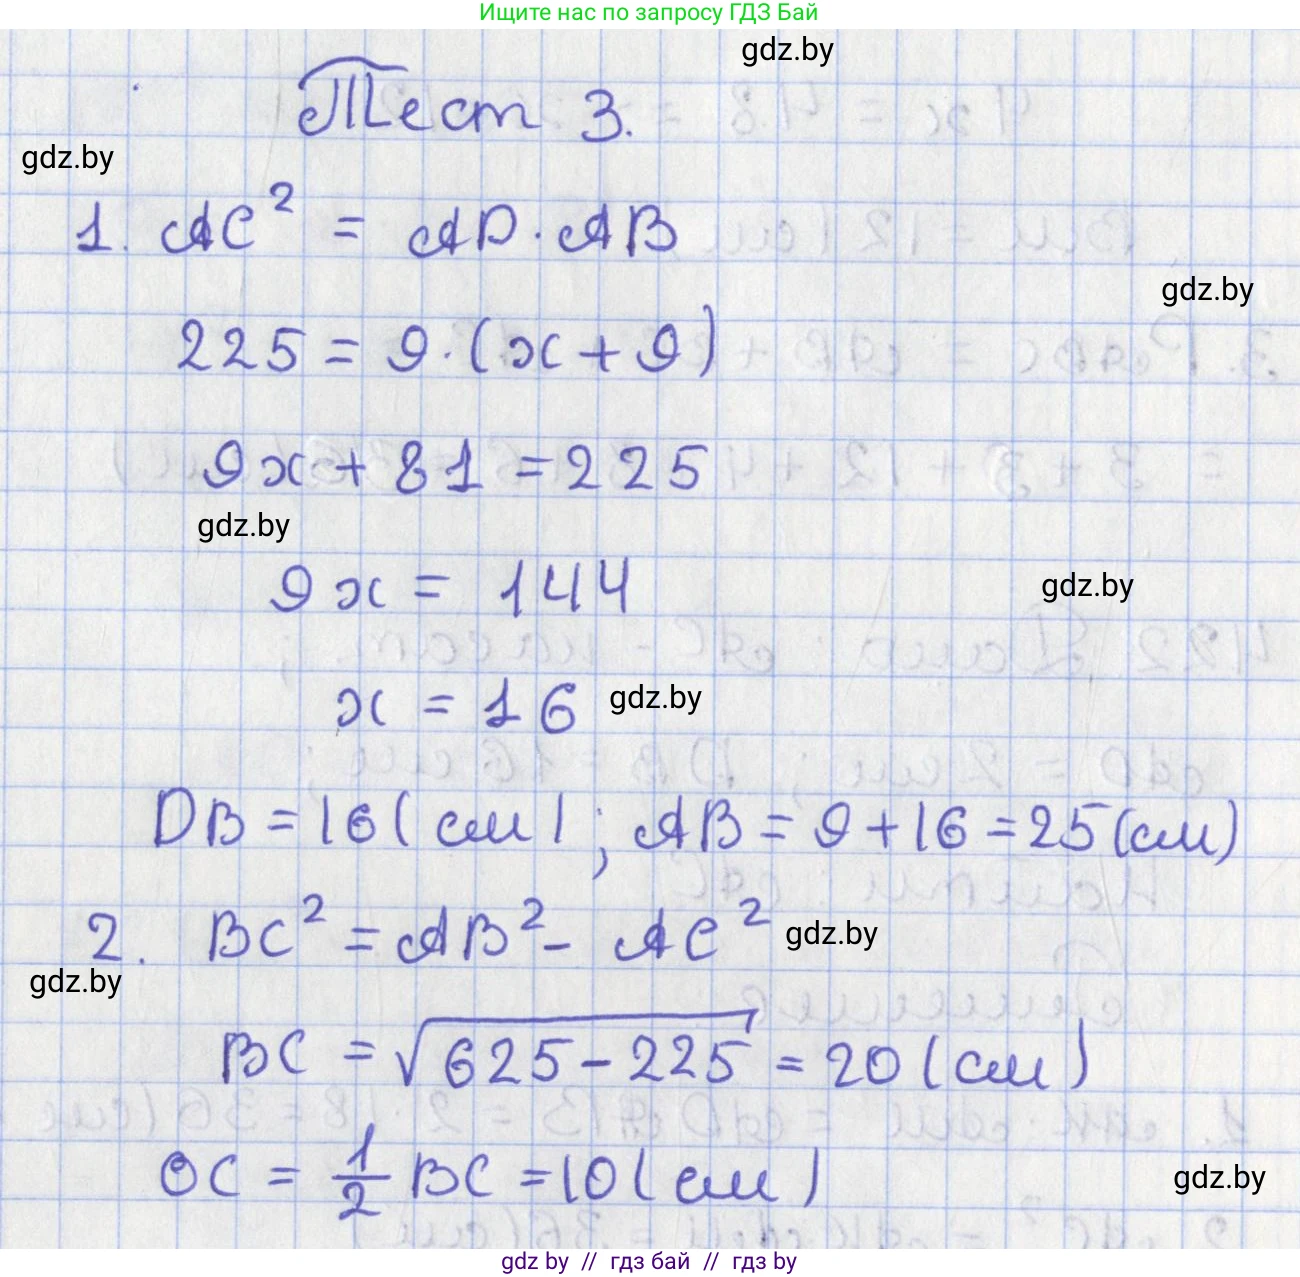 Ищите нас по запросу ГДЗ Бай
gdz.by
Тест 3.
gdz.by
1. AC² = AD · AB
gdz.by
225 = 9 · (x + 9)
9x + 81 = 225
gdz.by
9x = 144
gdz.by
x = 16 gdz.by
DB = 16 (см); AB = 9 + 16 = 25 (см)
2. BC² = AB² - AC² gdz.by
gdz.by
BC = √625 - 225 = 20 (см)
OC = 1/2 BC = 10 (см)
gdz.by
gdz by // гдз бай // гдз by